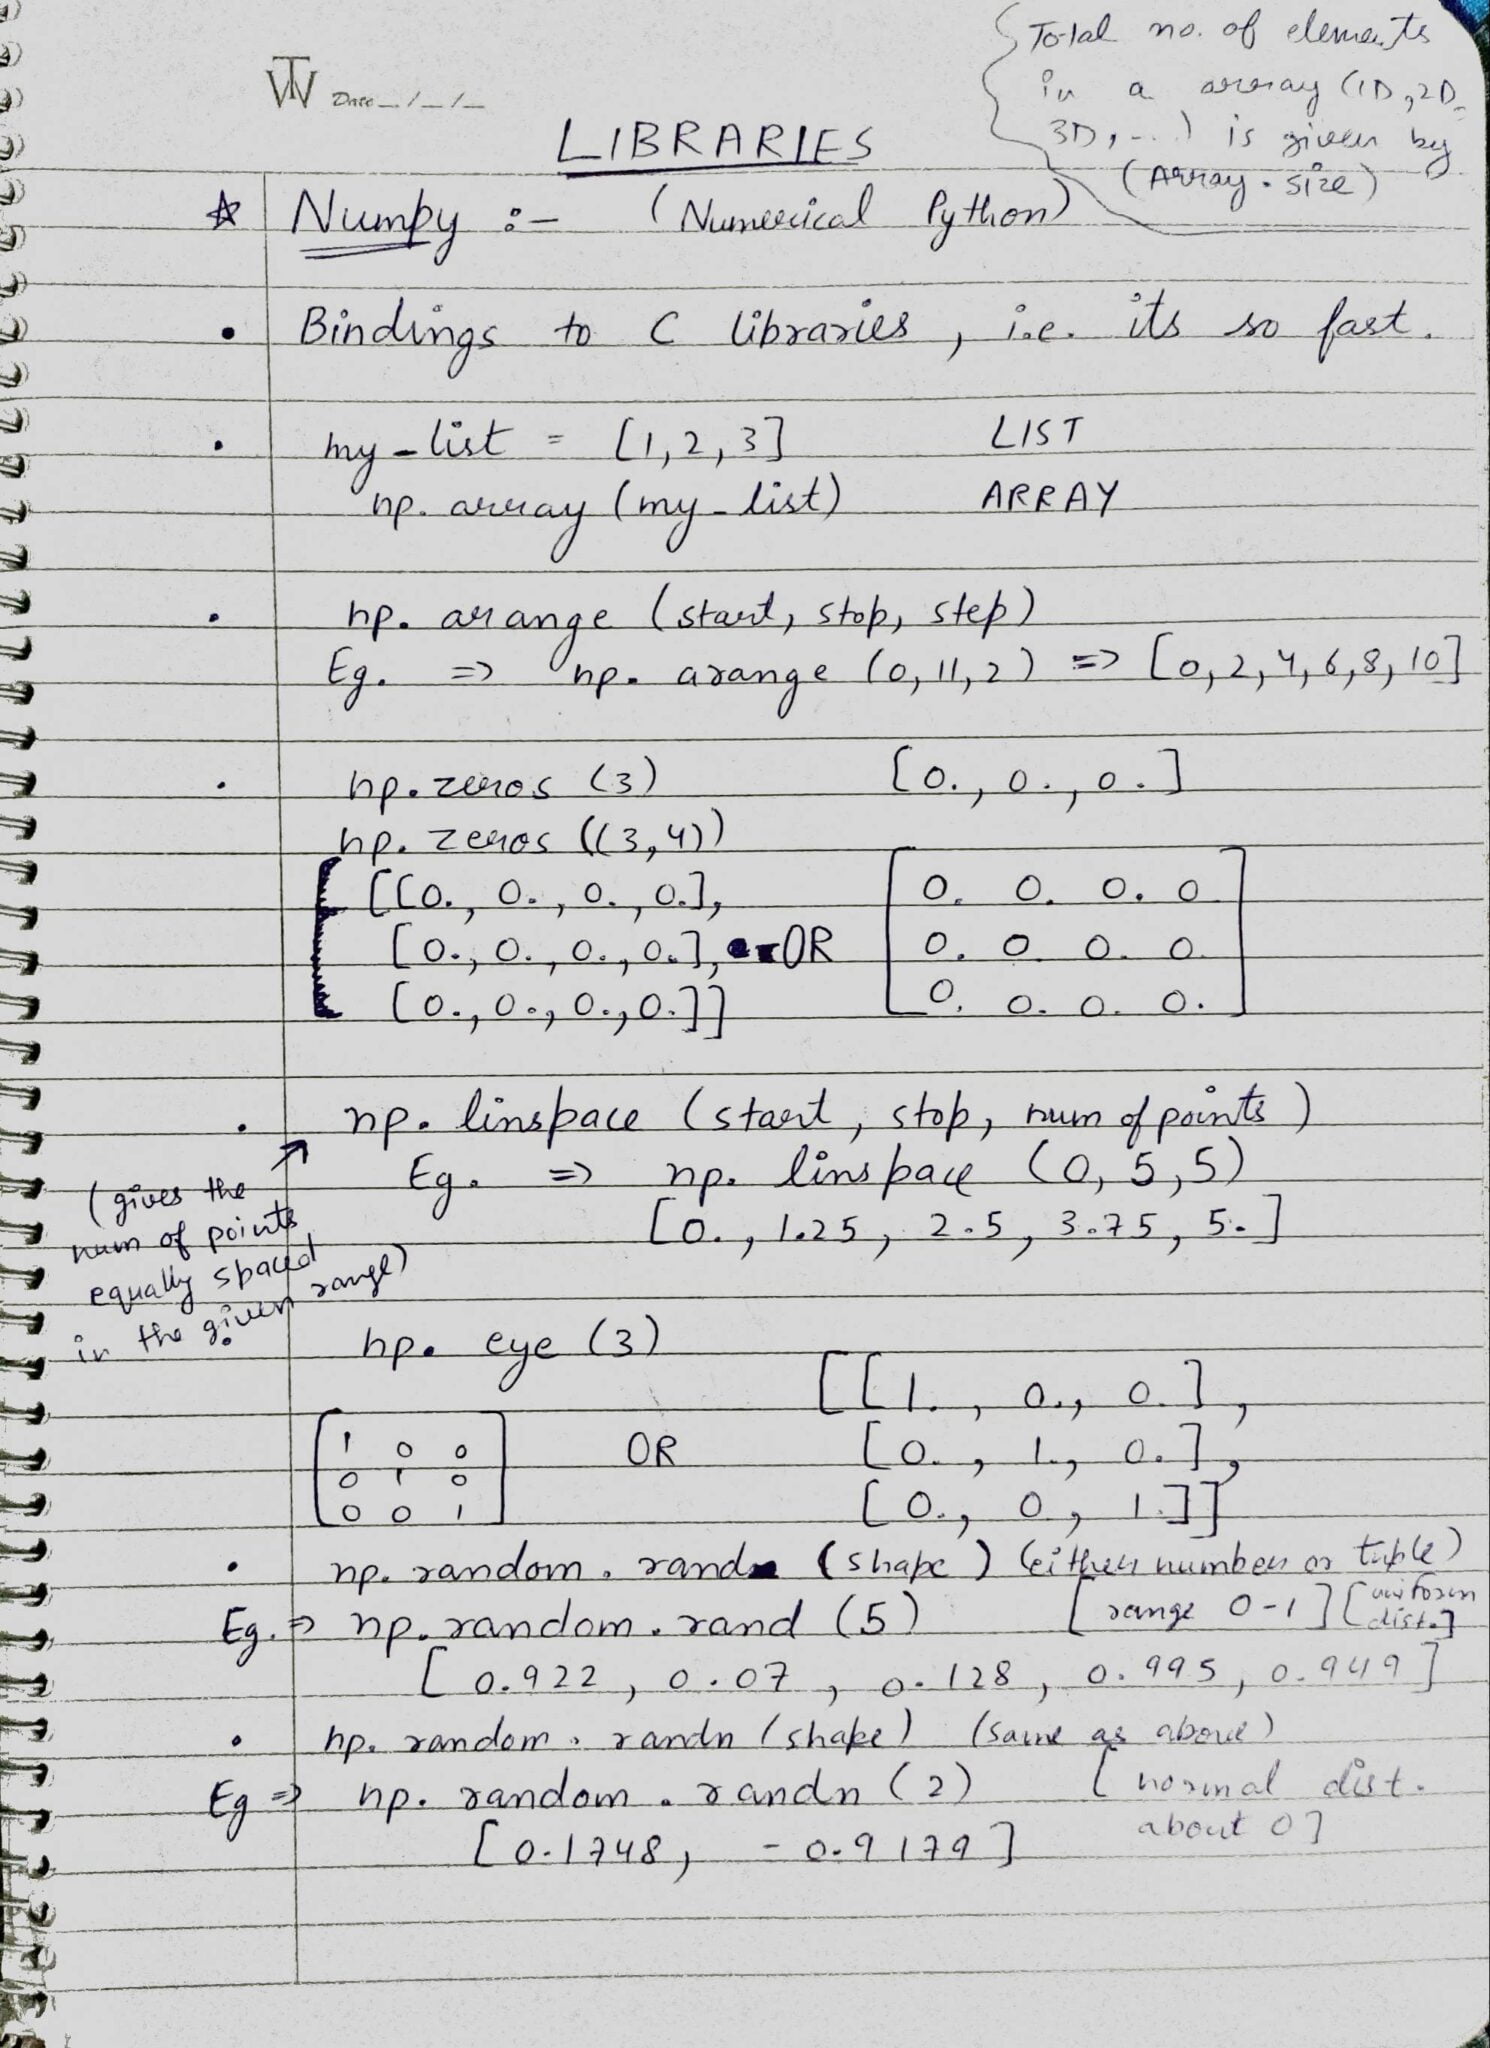 Total no. of elements
in a array (1D, 2D,
3D, ...) is given by
(Array. size)
Date _/_/_
LIBRARIES
☆ Numpy :- (Numerical Python)
• Bindings to C libraries, i.e. its so fast.
• my_list = [1,2,3] LIST
np. array (my_list) ARRAY
• np. arange (start, stop, step)
Eg. => np. arange (0,11,2) => [0,2,4,6,8,10]
• np.zeros (3) [0., 0., 0.]
np. zeros ((3,4))
[[0., 0., 0., 0.], 0. 0. 0. 0
[0., 0., 0., 0.], OR 0. 0. 0. 0.
[0., 0., 0., 0.]] 0. 0. 0. 0.
• np. linspace (start, stop, num of points)
Eg. => np. linspace (0, 5, 5)
[0., 1.25, 2.5, 3.75, 5.]
(gives the
num of points
equally spaced
in the given range)
• np. eye (3)
[[1., 0., 0.],
1 0 0 OR [0., 1., 0.],
0 1 0
0 0 1 [0., 0., 1.]]
• np. random. rand (shape) (either number or tuple)
Eg. => np. random. rand (5) [range 0-1] [uniform
dist.]
[0.922, 0.07, 0.128, 0.995, 0.949]
• np. random. randn (shape) (same as above)
Eg => np. random. randn (2) [normal dist.
about 0]
[0.1748, -0.9179]